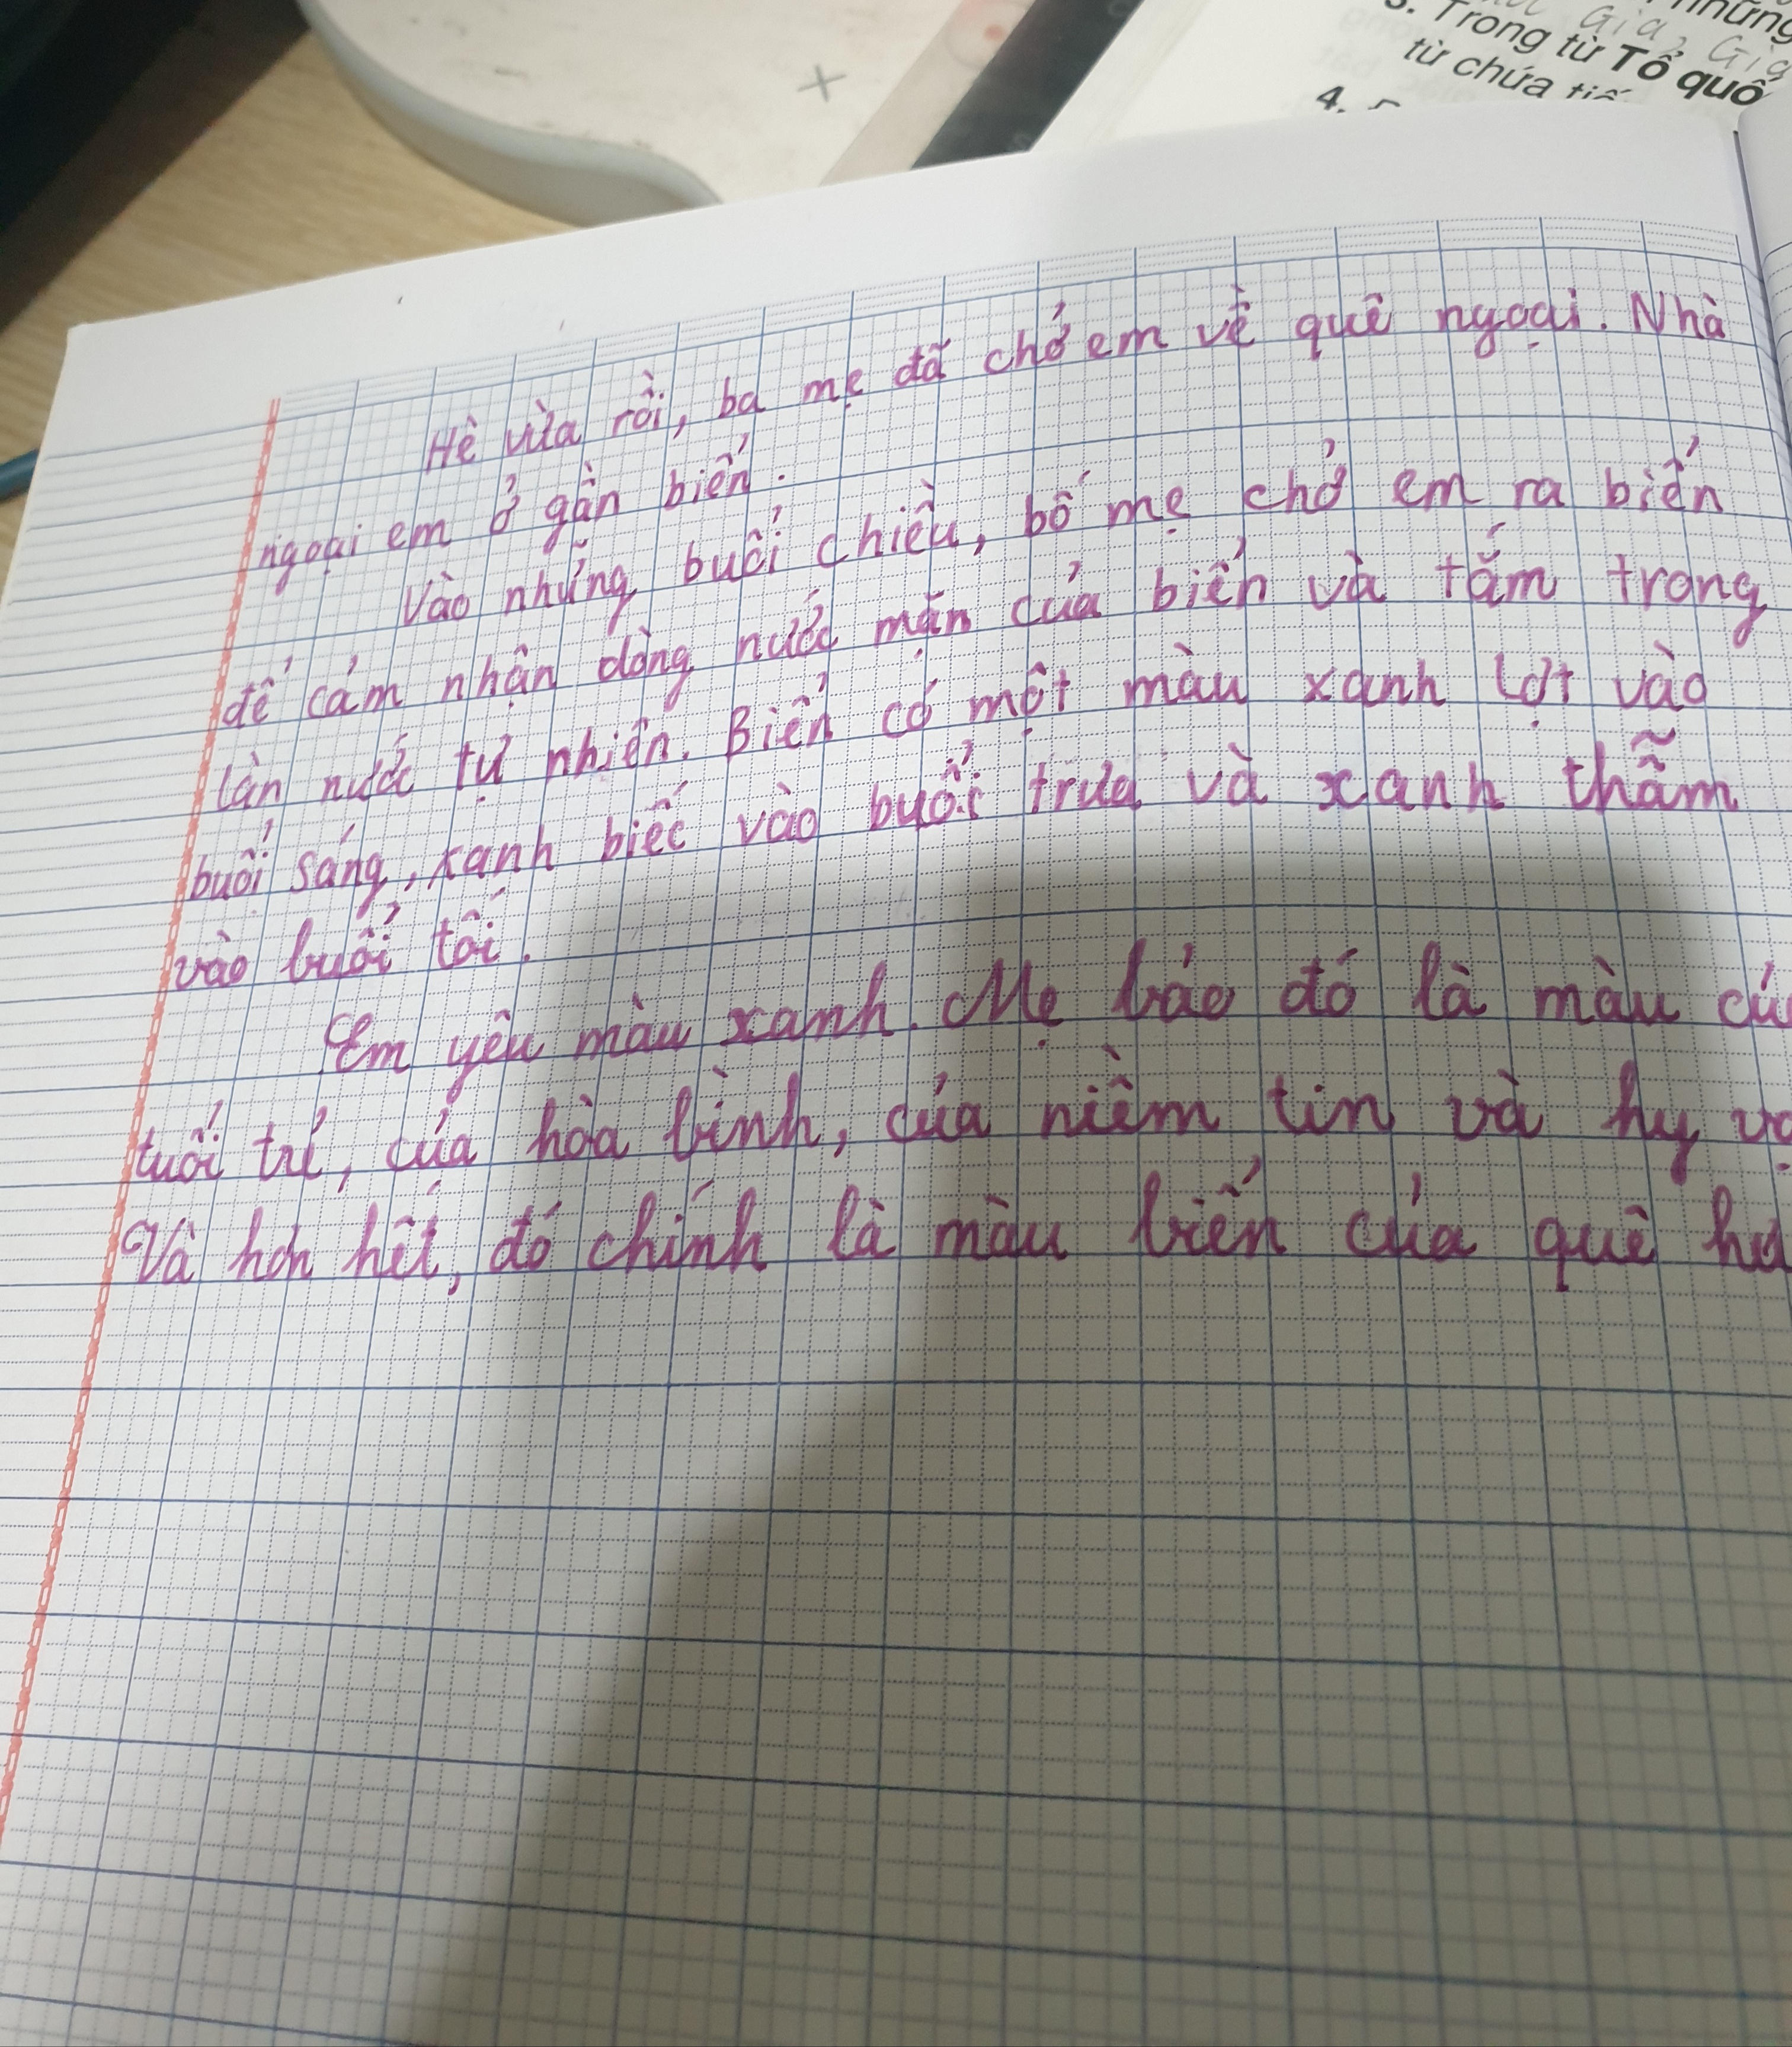 những
Gia, Gia
3. Trong từ Tổ quố
từ chứa tiế
4.
Hè vừa rồi, ba mẹ đã chở em về quê ngoại. Nhà
ngoại em ở gần biển.
Vào những buổi chiều, bố mẹ chở em ra biển
để cảm nhận dòng nước mặn của biển và tắm trong
làn nước tự nhiên. Biển có một màu xanh lợt vào
buổi sáng, xanh biếc vào buổi trưa và xanh thẫm
vào buổi tối.
Em yêu màu xanh. Mẹ bảo đó là màu củ
tuổi trẻ, của hòa bình, của niềm tin và hy vọ
Và hơn hết, đó chính là màu biển của quê hư